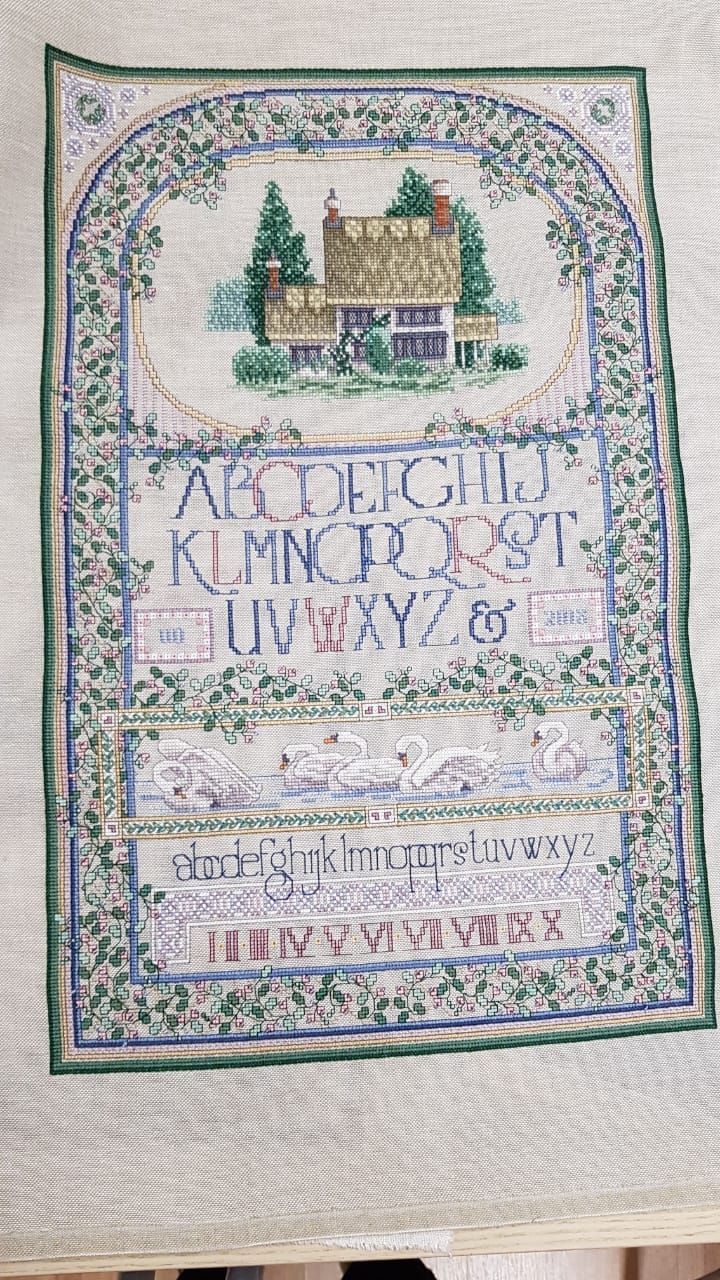 ABCDEFGHIJ
KLMNOPQRST
UVWXYZ &
abcdefghijklmnopqrstuvwxyz
I II III IV V VI VII VIII IX X